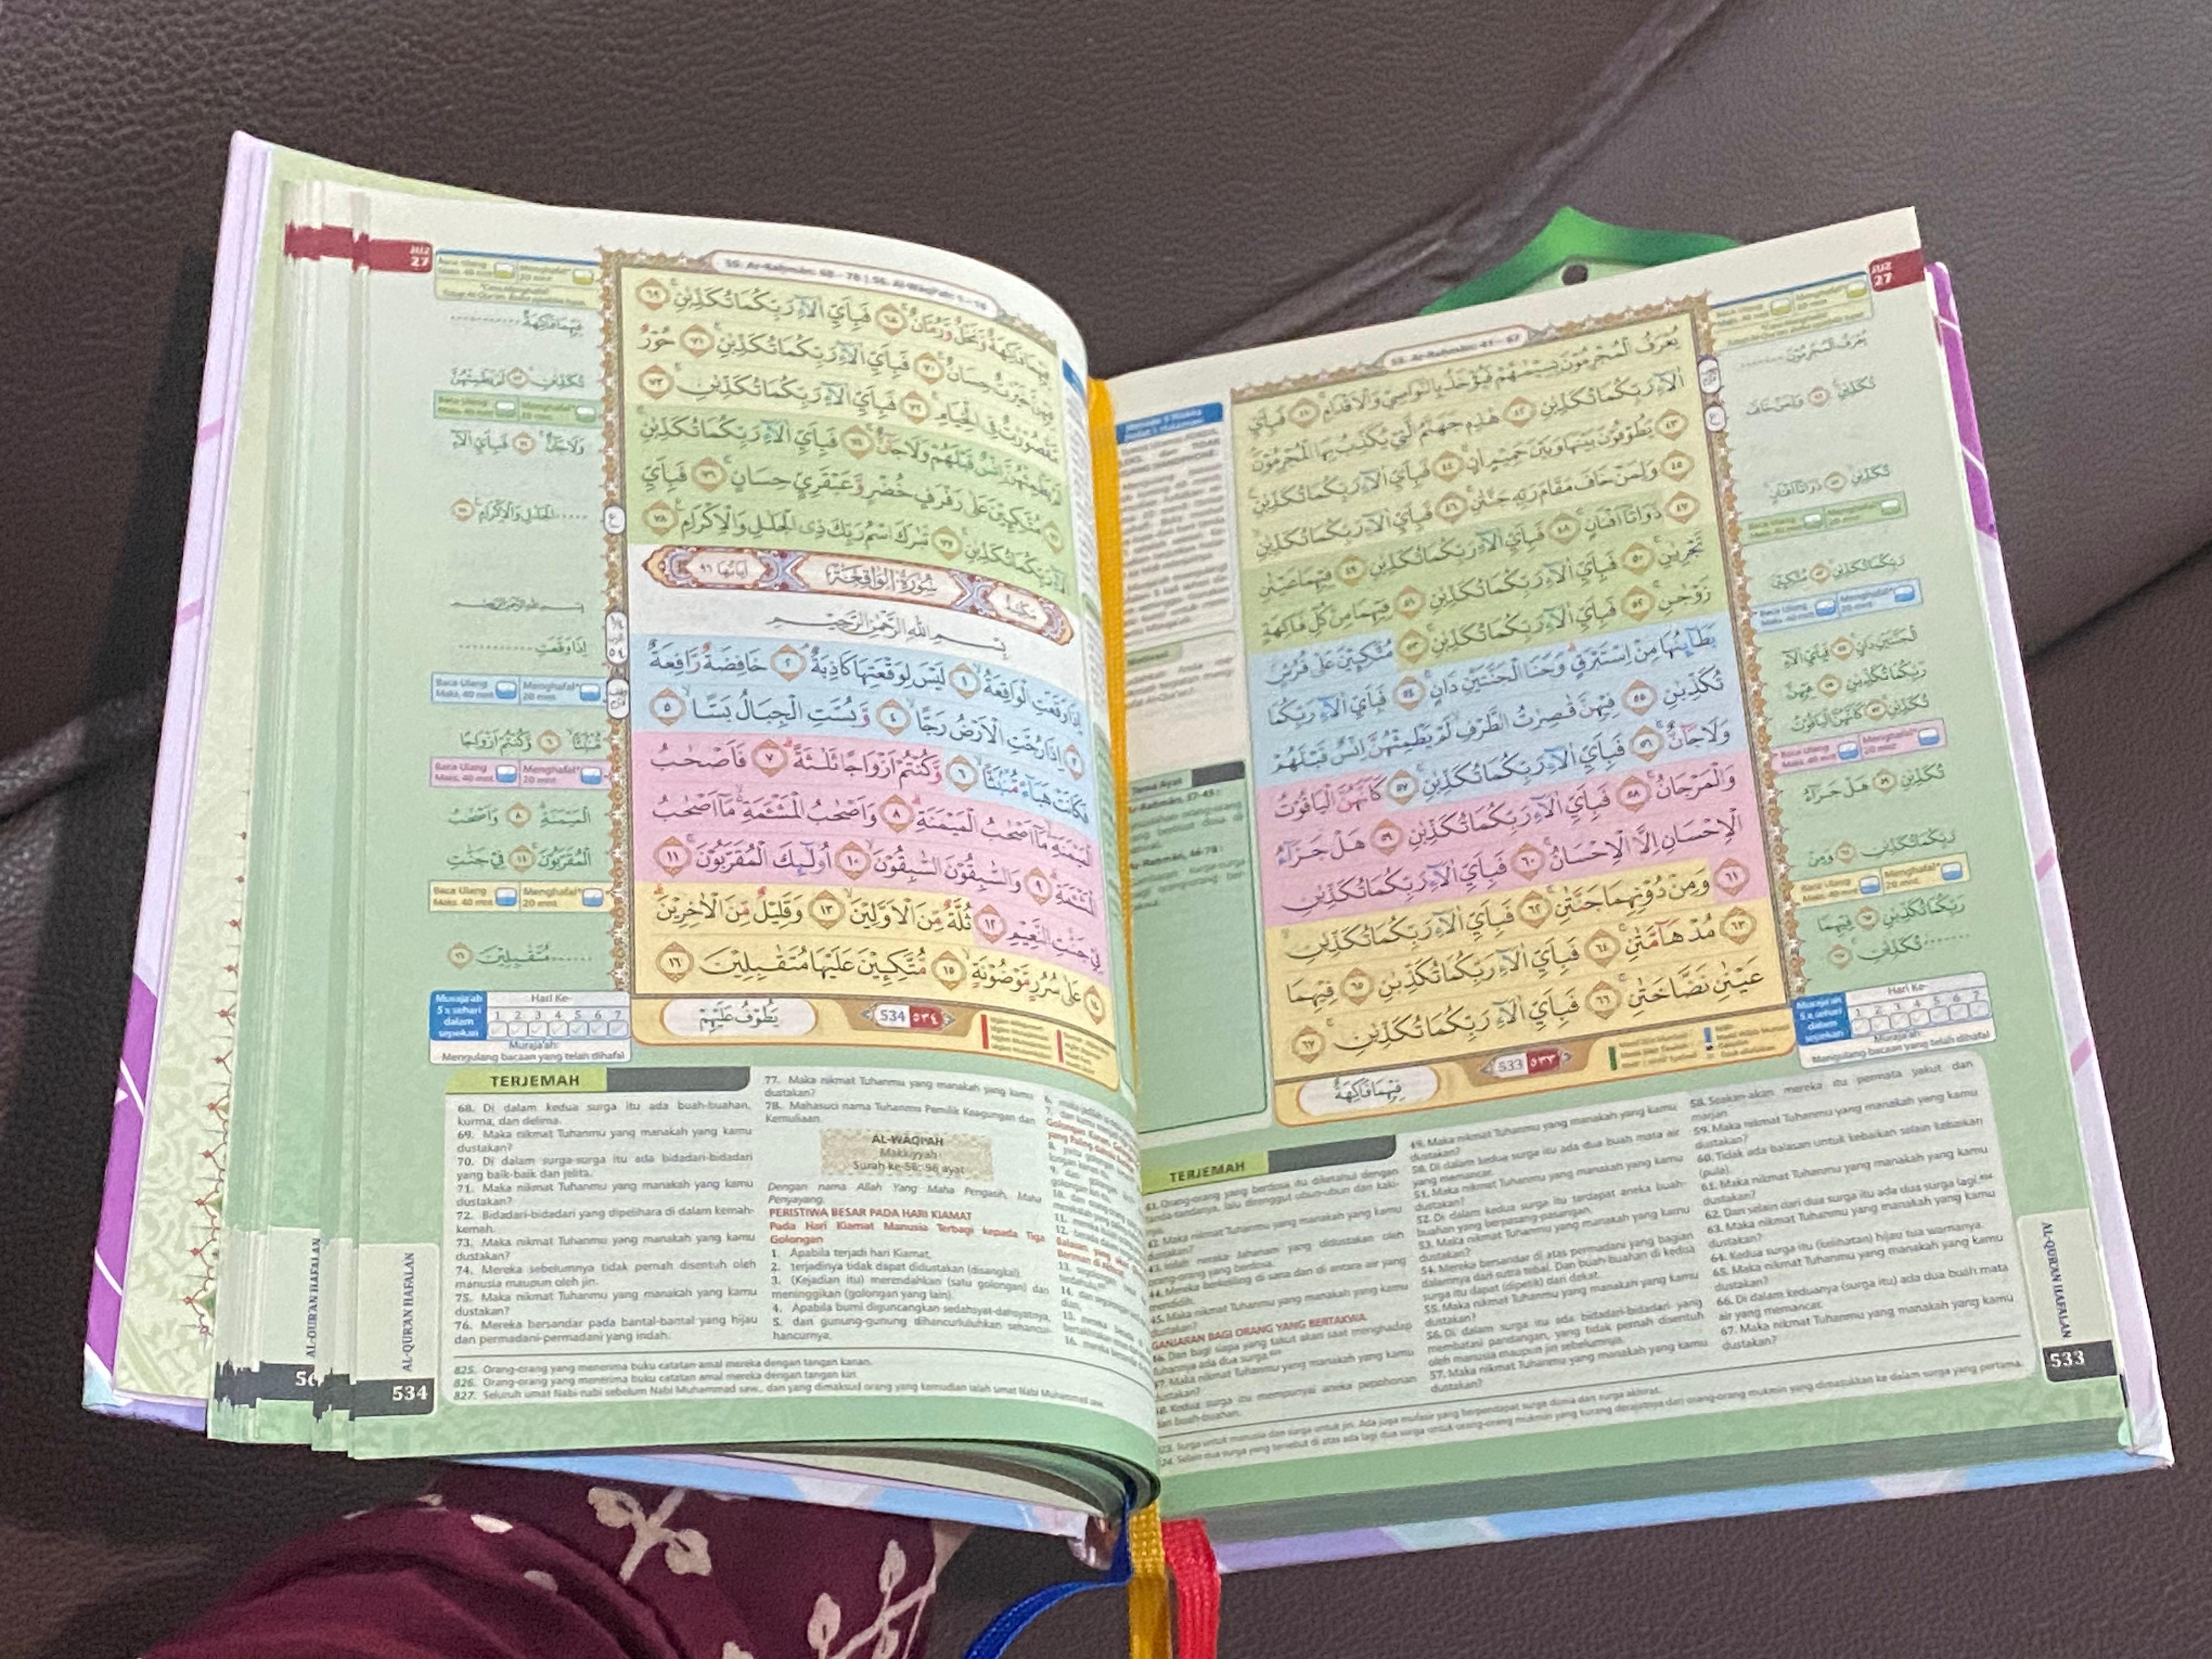 JUZ 27
55. Ar-Rahmān: 41 - 67
يُعْرَفُ الْمُجْرِمُوْنَ بِسِيْمٰهُمْ فَيُؤْخَذُ بِالنَّوَاصِيْ وَالْاَقْدَامِ ۚ ٤١ فَبِاَيِّ
اٰلَاۤءِ رَبِّكُمَا تُكَذِّبٰنِ ٤٢ هٰذِهٖ جَهَنَّمُ الَّتِيْ يُكَذِّبُ بِهَا الْمُجْرِمُوْنَ
٤٣ يَطُوْفُوْنَ بَيْنَهَا وَبَيْنَ حَمِيْمٍ اٰنٍ ۚ ٤٤ فَبِاَيِّ اٰلَاۤءِ رَبِّكُمَا تُكَذِّبٰنِ
٤٥ وَلِمَنْ خَافَ مَقَامَ رَبِّهٖ جَنَّتٰنِ ۚ ٤٦ فَبِاَيِّ اٰلَاۤءِ رَبِّكُمَا تُكَذِّبٰنِ
٤٧ ذَوَاتَآ اَفْنَانٍ ۚ ٤٨ فَبِاَيِّ اٰلَاۤءِ رَبِّكُمَا تُكَذِّبٰنِ ٤٩ فِيْهِمَا عَيْنٰنِ
تَجْرِيٰنِ ۚ ٥٠ فَبِاَيِّ اٰلَاۤءِ رَبِّكُمَا تُكَذِّبٰنِ ٥١ فِيْهِمَا مِنْ كُلِّ فَاكِهَةٍ
زَوْجٰنِ ۚ ٥٢ فَبِاَيِّ اٰلَاۤءِ رَبِّكُمَا تُكَذِّبٰنِ ٥٣ مُتَّكِـِٕيْنَ عَلٰى فُرُشٍ
بَطَاۤىِٕنُهَا مِنْ اِسْتَبْرَقٍ ۗ وَجَنَا الْجَنَّتَيْنِ دَانٍ ۚ ٥٤ فَبِاَيِّ اٰلَاۤءِ رَبِّكُمَا
تُكَذِّبٰنِ ٥٥ فِيْهِنَّ قٰصِرٰتُ الطَّرْفِ لَمْ يَطْمِثْهُنَّ اِنْسٌ قَبْلَهُمْ
وَلَا جَاۤنٌّ ۚ ٥٦ فَبِاَيِّ اٰلَاۤءِ رَبِّكُمَا تُكَذِّبٰنِ ۚ ٥٧ كَاَنَّهُنَّ الْيَاقُوْتُ
وَالْمَرْجَانُ ۚ ٥٨ فَبِاَيِّ اٰلَاۤءِ رَبِّكُمَا تُكَذِّبٰنِ ٥٩ هَلْ جَزَاۤءُ
الْاِحْسَانِ اِلَّا الْاِحْسَانُ ۚ ٦٠ فَبِاَيِّ اٰلَاۤءِ رَبِّكُمَا تُكَذِّبٰنِ
٦١ وَمِنْ دُوْنِهِمَا جَنَّتٰنِ ۚ ٦٢ فَبِاَيِّ اٰلَاۤءِ رَبِّكُمَا تُكَذِّبٰنِ ۙ
٦٣ مُدْهَاۤمَّتٰنِ ۚ ٦٤ فَبِاَيِّ اٰلَاۤءِ رَبِّكُمَا تُكَذِّبٰنِ ۚ ٦٥ فِيْهِمَا
عَيْنٰنِ نَضَّاخَتٰنِ ۚ ٦٦ فَبِاَيِّ اٰلَاۤءِ رَبِّكُمَا تُكَذِّبٰنِ ۚ ٦٧
533 ٥٣٣
فِيْهِمَا فَاكِهَةٌ
يُعْرَفُ الْمُجْرِمُوْنَ
تُكَذِّبٰنِ ٤٥ وَلِمَنْ خَافَ
تُكَذِّبٰنِ ٤٧ ذَوَاتَآ اَفْنَانٍ
رَبِّكُمَا تُكَذِّبٰنِ ٥٣ مُتَّكِـِٕيْنَ
Baca Ulang Maks. 40 mnt
Menghafal* 20 mnt
الْجَنَّتَيْنِ دَانٍ ٥٤ فَبِاَيِّ اٰلَاۤءِ
تُكَذِّبٰنِ ٥٧ كَاَنَّهُنَّ الْيَاقُوْتُ
Baca Ulang Maks. 40 mnt
Menghafal* 20 mnt
تُكَذِّبٰنِ ٥٩ هَلْ جَزَاۤءُ
Baca Ulang Maks. 40 mnt
Menghafal* 20 mnt
Muraja'ah 5 x sehari dalam sepekan
Hari Ke-
1 2 3 4 5 6 7
Muraja'ah:
Mengulang bacaan yang telah dihafal
TERJEMAH
41. Orang-orang yang berdosa itu diketahui dengan
tanda-tandanya, lalu direnggut ubun-ubun dan kaki-
42. Maka nikmat Tuhanmu yang manakah yang kamu
dustakan?
43. Inilah neraka Jahanam yang didustakan oleh
orang-orang yang berdosa.
44. Mereka berkeliling di sana dan di antara air yang
mendidih.
45. Maka nikmat Tuhanmu yang manakah yang kamu
dustakan?
GANJARAN BAGI ORANG YANG BERTAKWA
46. Dan bagi siapa yang takut akan saat menghadap
Tuhannya ada dua surga.
47. Maka nikmat Tuhanmu yang manakah yang kamu
dustakan?
48. Kedua surga itu mempunyai aneka pepohonan
dan buah-buahan.
49. Maka nikmat Tuhanmu yang manakah yang kamu
dustakan?
50. Di dalam kedua surga itu ada dua buah mata air
yang memancar.
51. Maka nikmat Tuhanmu yang manakah yang kamu
dustakan?
52. Di dalam kedua surga itu terdapat aneka buah-
buahan yang berpasang-pasangan.
53. Maka nikmat Tuhanmu yang manakah yang kamu
dustakan?
54. Mereka bersandar di atas permadani yang bagian
dalamnya dari sutra tebal. Dan buah-buahan di kedua
surga itu dapat (dipetik) dari dekat.
55. Maka nikmat Tuhanmu yang manakah yang kamu
dustakan?
56. Di dalam surga itu ada bidadari-bidadari yang
membatasi pandangan, yang tidak pernah disentuh
oleh manusia maupun jin sebelumnya.
57. Maka nikmat Tuhanmu yang manakah yang kamu
dustakan?
58. Seakan-akan mereka itu permata yakut dan
marjan.
59. Maka nikmat Tuhanmu yang manakah yang kamu
dustakan?
60. Tidak ada balasan untuk kebaikan selain kebaikan
(pula).
61. Maka nikmat Tuhanmu yang manakah yang kamu
dustakan?
62. Dan selain dari dua surga itu ada dua surga lagi.
63. Maka nikmat Tuhanmu yang manakah yang kamu
dustakan?
64. Kedua surga itu (kelihatan) hijau tua warnanya.
65. Maka nikmat Tuhanmu yang manakah yang kamu
dustakan?
66. Di dalam keduanya (surga itu) ada dua buah mata
air yang memancar.
67. Maka nikmat Tuhanmu yang manakah yang kamu
dustakan?
Surga untuk manusia dan surga untuk jin. Ada juga mufasir yang berpendapat surga dunia dan surga akhirat.
Selain dua surga yang tersebut di atas ada lagi dua surga untuk orang-orang mukmin yang kurang derajatnya dari orang-orang mukmin yang dimasukkan ke dalam surga yang pertama.
AL-QUR'AN HAFALAN
533
JUZ 27
55. Ar-Rahmān: 68 - 78 | 56. Al-Wāqi'ah: 1 - 16
فِيْهِمَا فَاكِهَةٌ وَّنَخْلٌ وَّرُمَّانٌ ۚ ٦٨ فَبِاَيِّ اٰلَاۤءِ رَبِّكُمَا تُكَذِّبٰنِ ۚ ٦٩
فِيْهِنَّ خَيْرٰتٌ حِسَانٌ ۚ ٧٠ فَبِاَيِّ اٰلَاۤءِ رَبِّكُمَا تُكَذِّبٰنِ ۚ ٧١ حُوْرٌ
مَّقْصُوْرٰتٌ فِى الْخِيَامِ ۚ ٧٢ فَبِاَيِّ اٰلَاۤءِ رَبِّكُمَا تُكَذِّبٰنِ ۚ ٧٣
لَمْ يَطْمِثْهُنَّ اِنْسٌ قَبْلَهُمْ وَلَا جَاۤنٌّ ۚ ٧٤ فَبِاَيِّ اٰلَاۤءِ رَبِّكُمَا تُكَذِّبٰنِ ۚ
٧٥ مُتَّكِـِٕيْنَ عَلٰى رَفْرَفٍ خُضْرٍ وَّعَبْقَرِيٍّ حِسَانٍ ۚ ٧٦ فَبِاَيِّ
اٰلَاۤءِ رَبِّكُمَا تُكَذِّبٰنِ ٧٧ تَبٰرَكَ اسْمُ رَبِّكَ ذِى الْجَلٰلِ وَالْاِكْرَامِ ࣖ ٧٨
مكيّة سُوْرَةُ الْوَاقِعَةِ اٰيَاتُهَا ٩٦
بِسْمِ اللّٰهِ الرَّحْمٰنِ الرَّحِيْمِ
اِذَا وَقَعَتِ الْوَاقِعَةُ ۙ ١ لَيْسَ لِوَقْعَتِهَا كَاذِبَةٌ ۘ ٢ خَافِضَةٌ رَّافِعَةٌ
٣ اِذَا رُجَّتِ الْاَرْضُ رَجًّا ۙ ٤ وَّبُسَّتِ الْجِبَالُ بَسًّا ۙ ٥
فَكَانَتْ هَبَاۤءً مُّنْۢبَثًّا ۙ ٦ وَّكُنْتُمْ اَزْوَاجًا ثَلٰثَةً ۗ ٧ فَاَصْحٰبُ
الْمَيْمَنَةِ ەۙ مَآ اَصْحٰبُ الْمَيْمَنَةِ ۗ ٨ وَاَصْحٰبُ الْمَشْـَٔمَةِ ەۙ مَآ اَصْحٰبُ
الْمَشْـَٔمَةِ ۗ ٩ وَالسّٰبِقُوْنَ السّٰبِقُوْنَ ۙ ١٠ اُولٰۤىِٕكَ الْمُقَرَّبُوْنَ ۚ ١١
فِيْ جَنّٰتِ النَّعِيْمِ ١٢ ثُلَّةٌ مِّنَ الْاَوَّلِيْنَ ۙ ١٣ وَقَلِيْلٌ مِّنَ الْاٰخِرِيْنَ ۗ
١٤ عَلٰى سُرُرٍ مَّوْضُوْنَةٍ ۙ ١٥ مُّتَّكِـِٕيْنَ عَلَيْهَا مُتَقٰبِلِيْنَ ١٦
534 ٥٣٤
يَطُوْفُ عَلَيْهِمْ
Baca Ulang Maks. 40 mnt
Menghafal* 20 mnt
فِيْهِمَا فَاكِهَةٌ
تُكَذِّبٰنِ ٧٣ لَمْ يَطْمِثْهُنَّ
Baca Ulang Maks. 40 mnt
Menghafal* 20 mnt
وَلَا جَاۤنٌّ ٧٤ فَبِاَيِّ اٰلَاۤءِ
الْجَلٰلِ وَالْاِكْرَامِ ٧٨
بِسْمِ اللّٰهِ الرَّحْمٰنِ الرَّحِيْمِ
اِذَا وَقَعَتِ
Baca Ulang Maks. 40 mnt
Menghafal* 20 mnt
مُّنْۢبَثًّا ٦ وَّكُنْتُمْ اَزْوَاجًا
Baca Ulang Maks. 40 mnt
Menghafal* 20 mnt
الْمَيْمَنَةِ ٨ وَاَصْحٰبُ
الْمُقَرَّبُوْنَ ١١ فِيْ جَنّٰتِ
Baca Ulang Maks. 40 mnt
Menghafal* 20 mnt
مُتَقٰبِلِيْنَ ١٦
Muraja'ah 5 x sehari dalam sepekan
Hari Ke-
1 2 3 4 5 6 7
Muraja'ah:
Mengulang bacaan yang telah dihafal
TERJEMAH
68. Di dalam kedua surga itu ada buah-buahan,
kurma, dan delima.
69. Maka nikmat Tuhanmu yang manakah yang kamu
dustakan?
70. Di dalam surga-surga itu ada bidadari-bidadari
yang baik-baik dan jelita.
71. Maka nikmat Tuhanmu yang manakah yang kamu
dustakan?
72. Bidadari-bidadari yang dipelihara di dalam kemah-
kemah.
73. Maka nikmat Tuhanmu yang manakah yang kamu
dustakan?
74. Mereka sebelumnya tidak pernah disentuh oleh
manusia maupun oleh jin.
75. Maka nikmat Tuhanmu yang manakah yang kamu
dustakan?
76. Mereka bersandar pada bantal-bantal yang hijau
dan permadani-permadani yang indah.
77. Maka nikmat Tuhanmu yang manakah yang kamu
dustakan?
78. Mahasuci nama Tuhanmu Pemilik Keagungan dan
Kemuliaan.
AL-WĀQI'AH
Makkiyyah
Surah ke-56: 96 ayat
Dengan nama Allah Yang Maha Pengasih, Maha
Penyayang.
PERISTIWA BESAR PADA HARI KIAMAT
Pada Hari Kiamat Manusia Terbagi kepada Tiga
Golongan
1. Apabila terjadi hari Kiamat,
2. terjadinya tidak dapat didustakan (disangkal).
3. (Kejadian itu) merendahkan (satu golongan) dan
meninggikan (golongan yang lain).
4. Apabila bumi diguncangkan sedahsyat-dahsyatnya,
5. dan gunung-gunung dihancurluluhkan sehancur-
hancurnya,
825. Orang-orang yang menerima buku catatan amal mereka dengan tangan kanan.
826. Orang-orang yang menerima buku catatan amal mereka dengan tangan kiri.
827. Seluruh umat Nabi-nabi sebelum Nabi Muhammad saw., dan yang dimaksud orang yang kemudian ialah umat Nabi Muhammad saw.
AL-QUR'AN HAFALAN
534
AL-QUR'AN HAFALAN
56